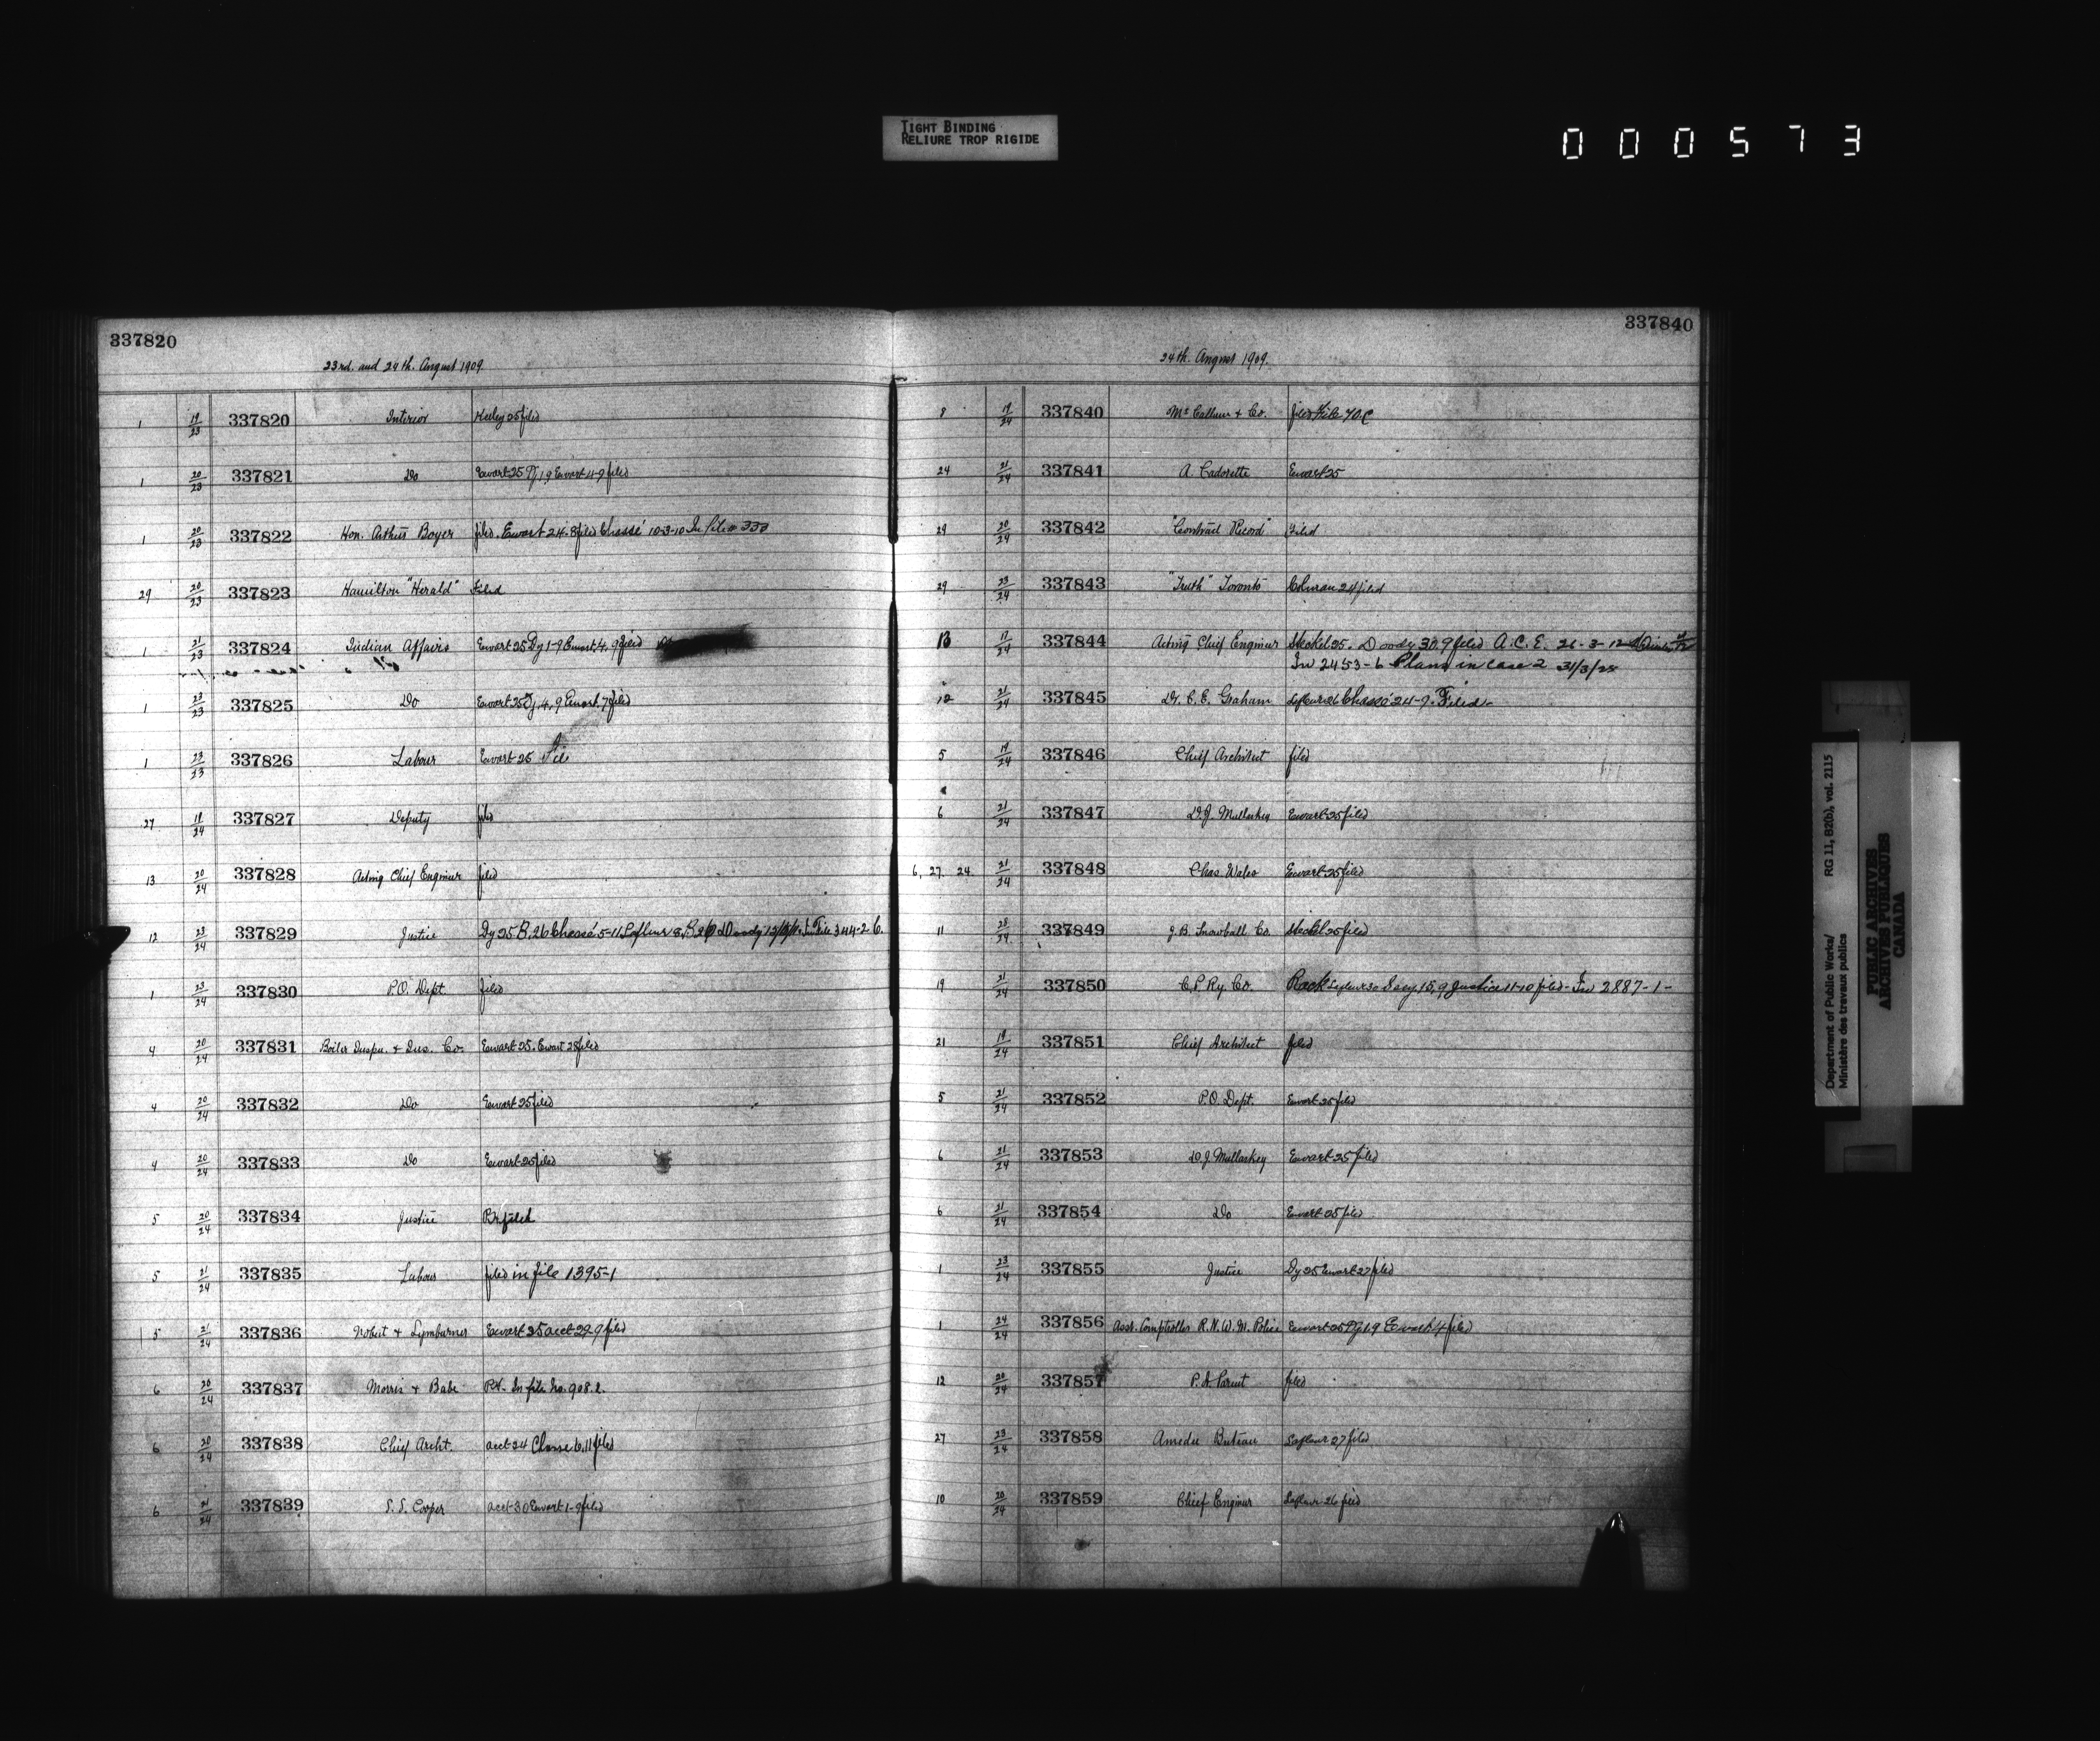 TIGHT BINDING
RELIURE TROP RIGIDE
000573
337820
23rd. and 24th. August 1909.
1 19/23 337820 Interior filed
1 20/23 337821 Do Ewart 25 Dy 1.9 Ewart 4-9 filed
1 20/23 337822 Hon. Arthur Boyer filed. Ewart 24.8 filed Chassé 10-3-10 In file 333
29 20/23 337823 Hamilton "Herald" Filed
1 21/23 337824 Indian Affairs Ewart 25 Dy 1-9 Ewart 4.9 filed
1 23/23 337825 Do Ewart 25 Dy. 4.9 Ewart. 7 filed
1 23/23 337826 Labour Ewart 25
27 19/24 337827 Deputy filed
13 20/24 337828 Acting Chief Engineer filed
12 23/24 337829 Justice Dy 25 R. 26 Chassé 5-11 Lafleur 8 File 344-2 C.
1 23/24 337830 P.O. Dept. filed
4 20/24 337831 Boiler Inspn. & Ins. Co. Ewart 25. Ewart 28 filed
4 20/24 337832 Do Ewart 25 filed
4 20/24 337833 Do Ewart 25 filed
5 20/24 337834 Justice filed
5 21/24 337835 Labour filed in file 1395-1
5 21/24 337836 & Lymburner Ewart 25 acct 29.9 filed
6 20/24 337837 Morris & In file No. 908.2.
6 20/24 337838 Chief Archt. acct 24 Chasse 6.11 filed
6 21/24 337839 S. S. Cooper acct 30 Ewart 1-9 filed
337840
24th. August 1909.
8 19/24 337840 McCallum & Co. filed
24 21/24 337841 A. Cadorette Ewart 25
29 20/24 337842 "Contract Record" Filed
29 23/24 337843 "Truth" Toronto 24 filed
13 17/24 337844 Acting Chief Engineer Steckel 25. Doody 30.9 filed A.C.E. 26-3-12
In 2453-6 Plans in case 2 31/3/25
12 21/24 337845 Dr. C. E. Graham Lafleur 26 Chassé 24-9. Filed-
5 19/24 337846 Chief Architect filed
6 21/24 337847 D.J. Mullarkey Ewart 25 filed
6, 27. 24 21/24 337848 Chas. Wales Ewart 25 filed
11 337849 J.B. Snowball Co. Steckel 25 filed
19 21/24 337850 C.P. Ry. Co. Rack Lafleur 30 Secy 15.9 Justice 11-10 filed - In 2887-1-
21 19/24 337851 Chief Architect filed
5 21/24 337852 P.O. Dept. Ewart 25 filed
6 21/24 337853 D.J. Mullarkey Ewart 25 filed
6 21/24 337854 Do Ewart 25 filed
1 23/24 337855 Justice Dy 25 Ewart 27 filed
1 24/24 337856 Asst. Comptroller R.N.W.M. Police Ewart 25 Dy 1.9 Ewart 4 filed
12 20/24 337857 P. A. Parent filed
27 23/24 337858 Amedee Buteau Lafleur 27 filed
10 20/24 337859 Chief Engineer Lafleur 26 filed
Department of Public Works/
Ministère des travaux publics
RG 11, B2(b), vol. 2115
PUBLIC ARCHIVES
ARCHIVES PUBLIQUES
CANADA